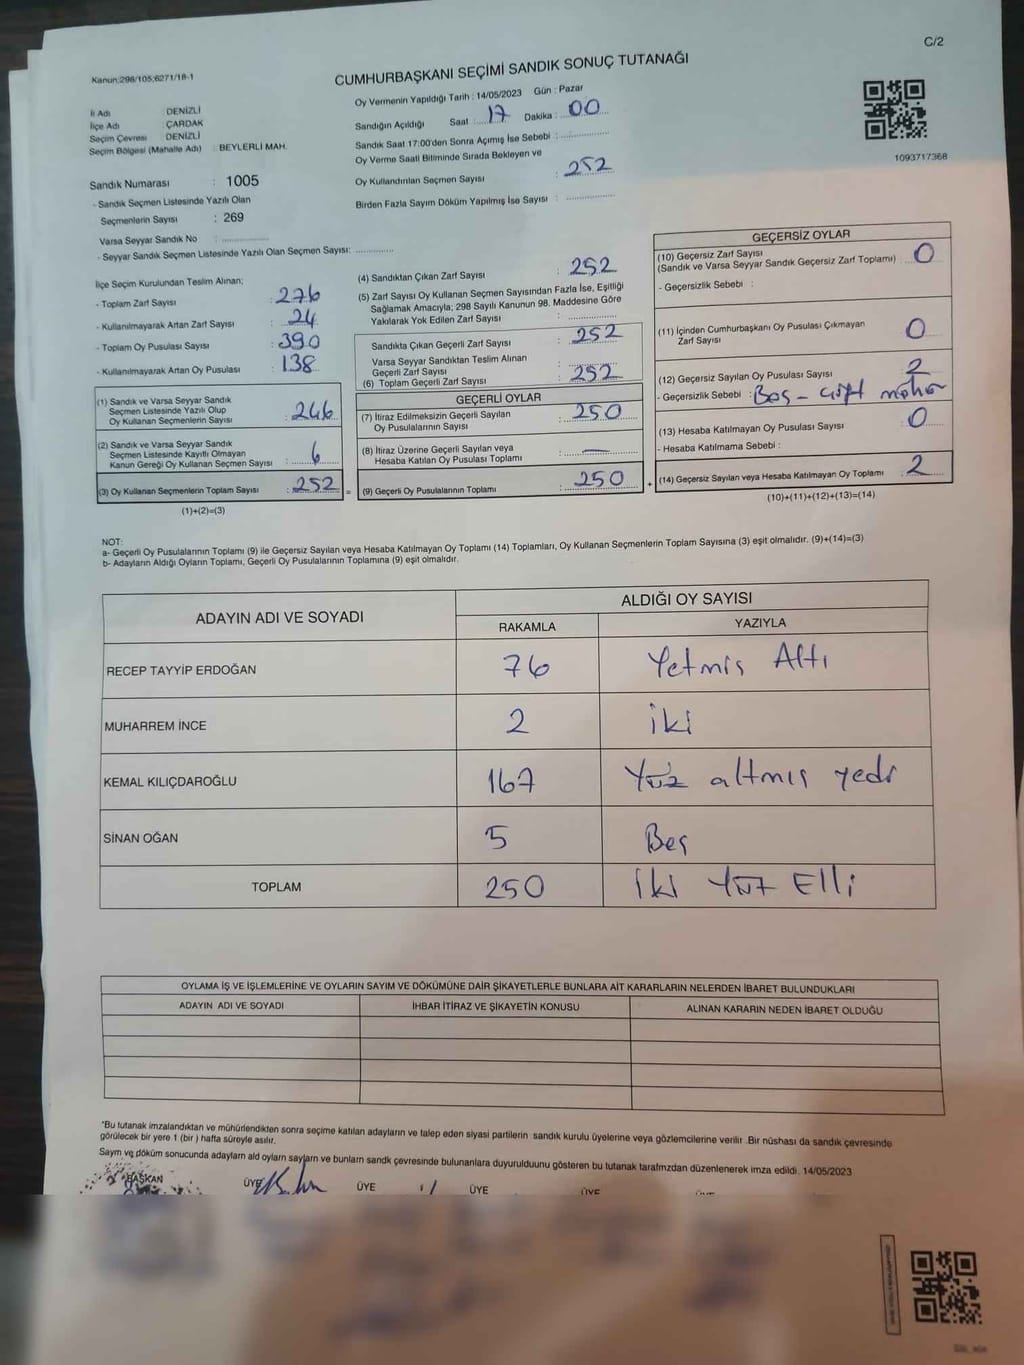 C/2
Kanun:298/105;6271/18-1
CUMHURBAŞKANI SEÇİMİ SANDIK SONUÇ TUTANAĞI
İl Adı : DENİZLİ
İlçe Adı : ÇARDAK
Seçim Çevresi : DENİZLİ
Seçim Bölgesi (Mahalle Adı) : BEYLERLİ MAH.
Sandık Numarası : 1005
- Sandık Seçmen Listesinde Yazılı Olan
Seçmenlerin Sayısı : 269
Varsa Seyyar Sandık No : ..................
- Seyyar Sandık Seçmen Listesinde Yazılı Olan Seçmen Sayısı: .............
Oy Vermenin Yapıldığı Tarih : 14/05/2023 Gün : Pazar
Sandığın Açıldığı Saat : 17 Dakika : 00
Sandık Saat 17:00'den Sonra Açımış İse Sebebi : ..................
Oy Verme Saati Bitiminde Sırada Bekleyen ve
Oy Kullandırılan Seçmen Sayısı : 252
Birden Fazla Sayım Döküm Yapılmış İse Sayısı : ..................
1093717368
İlçe Seçim Kurulundan Teslim Alınan;
- Toplam Zarf Sayısı : 276
- Kullanılmayarak Artan Zarf Sayısı : 24
- Toplam Oy Pusulası Sayısı : 390
- Kullanılmayarak Artan Oy Pusulası : 138
(1) Sandık ve Varsa Seyyar Sandık
Seçmen Listesinde Yazılı Olup
Oy Kullanan Seçmenlerin Sayısı : 246
(2) Sandık ve Varsa Seyyar Sandık
Seçmen Listesinde Kayıtlı Olmayan
Kanun Gereği Oy Kullanan Seçmen Sayısı : 6
(3) Oy Kullanan Seçmenlerin Toplam Sayısı : 252 =
(1)+(2)=(3)
(4) Sandıktan Çıkan Zarf Sayısı : 252
(5) Zarf Sayısı Oy Kullanan Seçmen Sayısından Fazla İse, Eşitliği
Sağlamak Amacıyla; 298 Sayılı Kanunun 98. Maddesine Göre
Yakılarak Yok Edilen Zarf Sayısı : ..................
Sandıkta Çıkan Geçerli Zarf Sayısı : 252
Varsa Seyyar Sandıktan Teslim Alınan
Geçerli Zarf Sayısı : ..................
(6) Toplam Geçerli Zarf Sayısı : 252
GEÇERLİ OYLAR
(7) İtiraz Edilmeksizin Geçerli Sayılan
Oy Pusulalarının Sayısı : 250
(8) İtiraz Üzerine Geçerli Sayılan veya
Hesaba Katılan Oy Pusulası Toplamı : —
(9) Geçerli Oy Pusulalarının Toplamı : 250 +
GEÇERSİZ OYLAR
(10) Geçersiz Zarf Sayısı
(Sandık ve Varsa Seyyar Sandık Geçersiz Zarf Toplamı) 0
- Geçersizlik Sebebi :
(11) İçinden Cumhurbaşkanı Oy Pusulası Çıkmayan
Zarf Sayısı 0
(12) Geçersiz Sayılan Oy Pusulası Sayısı 2
- Geçersizlik Sebebi : Boş - çift mühür
(13) Hesaba Katılmayan Oy Pusulası Sayısı : 0
- Hesaba Katılmama Sebebi :
(14) Geçersiz Sayılan veya Hesaba Katılmayan Oy Toplamı : 2
(10)+(11)+(12)+(13)=(14)
NOT:
a- Geçerli Oy Pusulalarının Toplamı (9) ile Geçersiz Sayılan veya Hesaba Katılmayan Oy Toplamı (14) Toplamları, Oy Kullanan Seçmenlerin Toplam Sayısına (3) eşit olmalıdır. (9)+(14)=(3)
b- Adayların Aldığı Oyların Toplamı, Geçerli Oy Pusulalarının Toplamına (9) eşit olmalıdır.
ADAYIN ADI VE SOYADI ALDIĞI OY SAYISI
RAKAMLA YAZIYLA
RECEP TAYYİP ERDOĞAN 76 Yetmiş Altı
MUHARREM İNCE 2 İki
KEMAL KILIÇDAROĞLU 167 Yüz altmış yedi
SİNAN OĞAN 5 Beş
TOPLAM 250 İki Yüz Elli
OYLAMA İŞ VE İŞLEMLERİNE VE OYLARIN SAYIM VE DÖKÜMÜNE DAİR ŞİKAYETLERLE BUNLARA AİT KARARLARIN NELERDEN İBARET BULUNDUKLARI
ADAYIN ADI VE SOYADI İHBAR İTİRAZ VE ŞİKAYETİN KONUSU ALINAN KARARIN NEDEN İBARET OLDUĞU
*Bu tutanak imzalandıktan ve mühürlendikten sonra seçime katılan adayların ve talep eden siyasi partilerin sandık kurulu üyelerine veya gözlemcilerine verilir .Bir nüshası da sandık çevresinde
görülecek bir yere 1 (bir ) hafta süreyle asılır.
Sayım ve döküm sonucunda adayların ald oyların sayların ve bunların sandk çevresinde bulunanlara duyurulduunu gösteren bu tutanak tarafmzdan düzenlenerek imza edildi. 14/05/2023
BAŞKAN ÜYE ÜYE ÜYE ÜYE